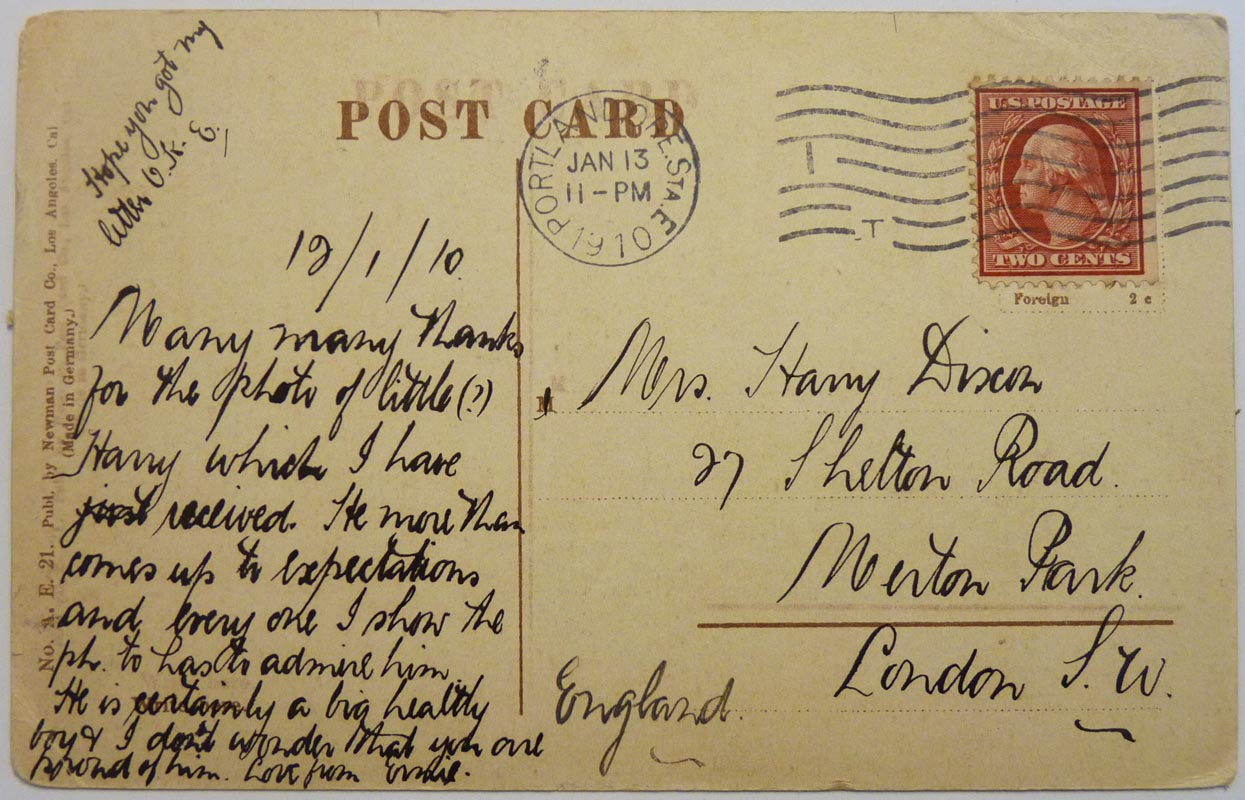 Hope you got my
letter O.K. E.
POST CARD
PORTLAND, ORE. STA. E
JAN 13
11-PM
1910
U.S. POSTAGE
TWO CENTS
Foreign 2 c
No. A. E. 21. Publ. by Newman Post Card Co., Los Angeles, Cal
(Made in Germany.)
12/1/10
Many many thanks
for the photo of little (?)
Harry which I have
just received. He more than
comes up to expectations
and every one I show the
ph. to has to admire him.
He is certainly a big healthy
boy & I don't wonder that you are
proud of him. Love from Ernie.
Mrs. Harry Dixon
27 Shelton Road.
Merton Park.
London S.W.
England.